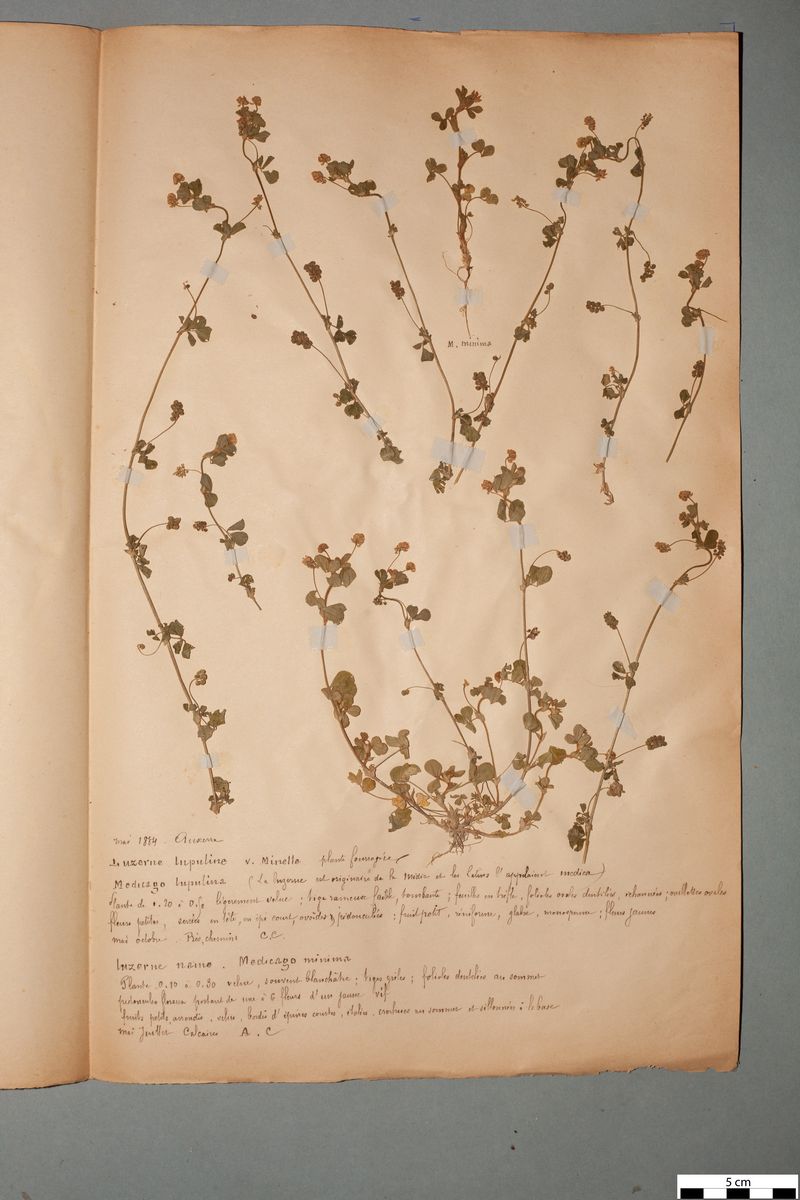 M. minima
mai 1884. Auxerre
Luzerne lupuline v. Minette plante fourragère
Medicago lupulina (La luzerne est originaire de la Médie et les latins l'appelaient medica)
Plante de 0.20 à 0.50 légèrement velue ; tige rameuse faible, tombante ; feuilles en trèfle, folioles ovales dentelées, échancrées ; oreillettes ovales
fleurs petites, serrées en tête, en épi court, ovoïdes, pédonculées ; fruit petit, réniforme, glabre, monosperme ; fleurs jaunes
mai octobre. Prés, chemins C.C.
Luzerne naine. Medicago minima
Plante 0.10 à 0.30 velue, souvent blanchâtre ; tiges grêles ; folioles dentelées au sommet
pédoncules floraux portant de une à 6 fleurs d'un jaune vif
fruits petits, arrondis, velus, bordés d'épines courtes, étalées, crochues au sommet et sillonnées à la base
mai Juillet Calcaires A. C
5 cm